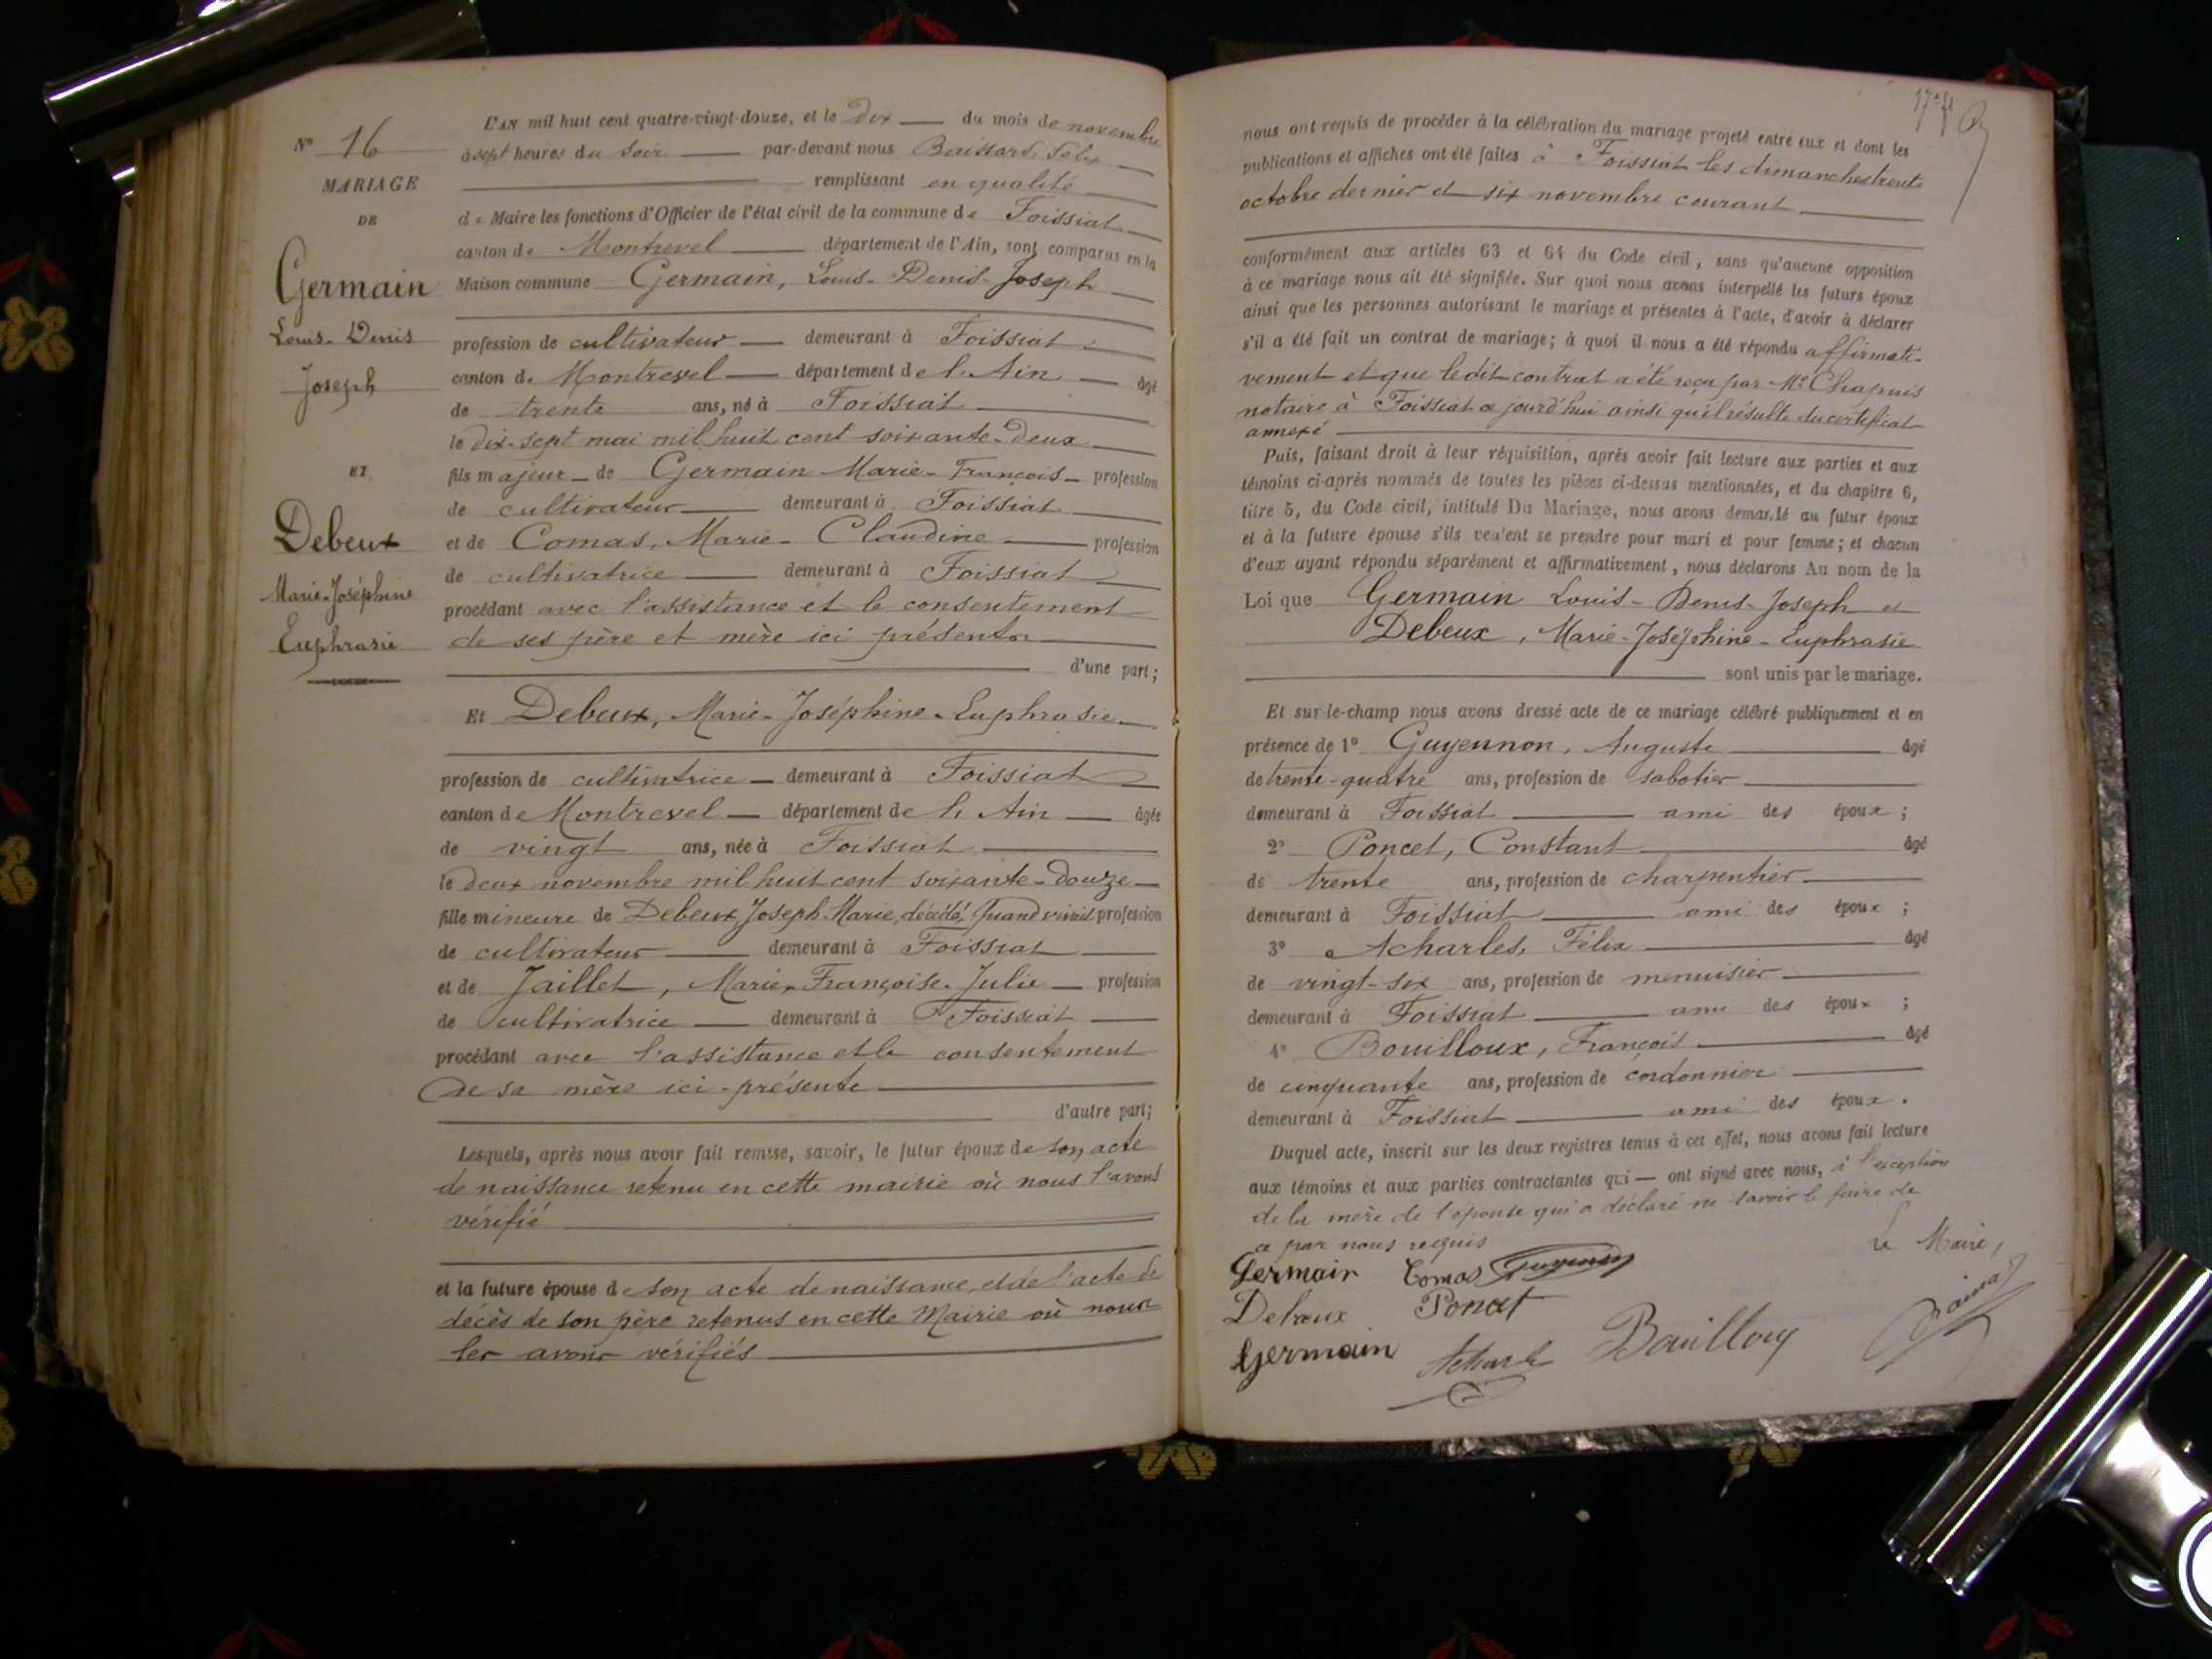 L'AN mil huit cent quatre-vingt-douze, et le dix — du mois de novembre
à sept heures du soir — par-devant nous Félix
remplissant en qualité
de Maire les fonctions d'Officier de l'état civil de la commune de Foissiat
canton de Montrevel — département de l'Ain, sont comparus en la
Maison commune Germain, Louis-Denis-Joseph
profession de cultivateur — demeurant à Foissiat
canton de Montrevel — département de l'Ain — âgé
de trente ans, né à Foissiat
le dix-sept mai mil huit cent soixante-deux
fils majeur de Germain Marie-François — profession
de cultivateur — demeurant à Foissiat
et de Comas, Marie-Claudine — profession
de cultivatrice — demeurant à Foissiat
procédant avec l'assistance et le consentement
de ses père et mère ici présents
d'une part;
Et Debeux, Marie-Joséphine-Euphrasie
profession de cultivatrice — demeurant à Foissiat
canton de Montrevel — département de l'Ain — âgée
de vingt ans, née à Foissiat
le deux novembre mil huit cent soixante-douze
fille mineure de Debeux, Joseph-Marie, décédé, quand vivait profession
de cultivateur — demeurant à Foissiat
et de Jaillet, Marie-Françoise-Julie — profession
de cultivatrice — demeurant à Foissiat
procédant avec l'assistance et le consentement
de sa mère ici-présente
d'autre part;
Lesquels, après nous avoir fait remise, savoir, le futur époux de son acte
de naissance retenu en cette mairie où nous l'avons
vérifié
et la future épouse de son acte de naissance, et de l'acte de
décès de son père retenus en cette Mairie où nous
les avons vérifiés
N° 16
MARIAGE
DE
Germain
Louis-Denis
Joseph
ET
Debeux
Marie-Joséphine
Euphrasie
nous ont requis de procéder à la célébration du mariage projeté entre eux et dont les
publications et affiches ont été faites à Foissiat les dimanches trente
octobre dernier et six novembre courant
conformément aux articles 63 et 64 du Code civil, sans qu'aucune opposition
à ce mariage nous ait été signifiée. Sur quoi nous avons interpellé les futurs époux
ainsi que les personnes autorisant le mariage et présentes à l'acte, d'avoir à déclarer
s'il a été fait un contrat de mariage; à quoi il nous a été répondu affirmati-
vement et que ledit contrat a été reçu par Me Chapuis
notaire à Foissiat ce jourd'hui ainsi qu'il résulte du certificat
annexé
Puis, faisant droit à leur réquisition, après avoir fait lecture aux parties et aux
témoins ci-après nommés de toutes les pièces ci-dessus mentionnées, et du chapitre 6,
titre 5, du Code civil, intitulé Du Mariage, nous avons demandé au futur époux
et à la future épouse s'ils veulent se prendre pour mari et pour femme; et chacun
d'eux ayant répondu séparément et affirmativement, nous déclarons Au nom de la
Loi que Germain Louis-Denis-Joseph et
Debeux, Marie-Joséphine-Euphrasie
sont unis par le mariage.
Et sur-le-champ nous avons dressé acte de ce mariage célébré publiquement et en
présence de 1° Guyennon, Auguste — âgé
de trente-quatre ans, profession de sabotier
demeurant à Foissiat — ami des époux;
2° Poncet, Constant — âgé
de trente ans, profession de charpentier
demeurant à Foissiat — ami des époux;
3° Acharles, Félix — âgé
de vingt-six ans, profession de menuisier
demeurant à Foissiat — ami des époux;
4° Bouilloux, François — âgé
de cinquante ans, profession de cordonnier
demeurant à Foissiat — ami des époux.
Duquel acte, inscrit sur les deux registres tenus à cet effet, nous avons fait lecture
aux témoins et aux parties contractantes qui — ont signé avec nous, à l'exception
de la mère de l'épouse qui a déclaré ne savoir le faire de
ce par nous requis
Le Maire,
Germain Comas
Debeux Poncet
Germain Bouilloux